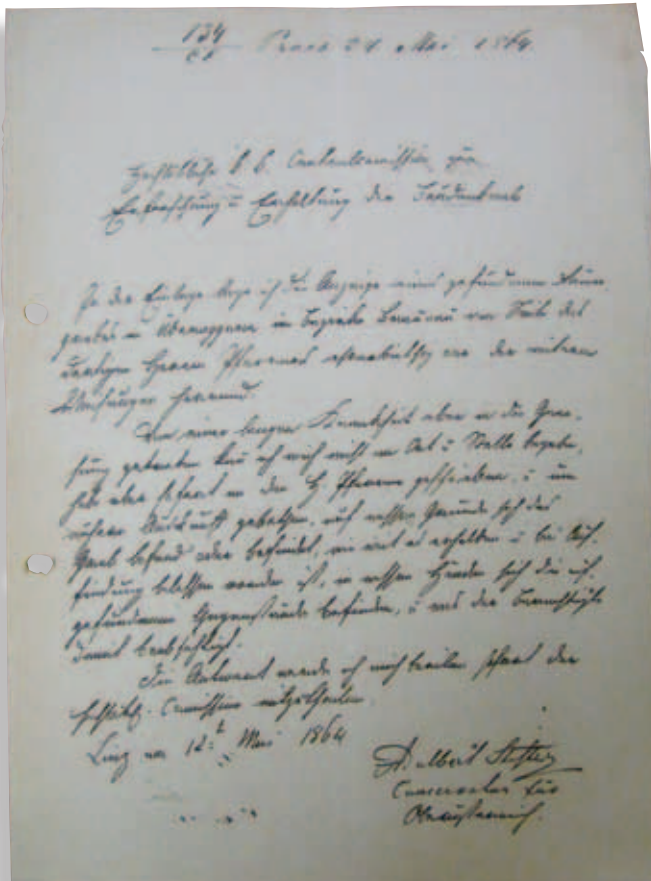 134
Praes 24 Mai 1864
Hochlöbliche k k Centralcommission zur
Erforschung u Erhaltung der Baudenkmale
In der Einlage lege ich die Anzeige eines gefundenen
grabes in Überackern im Bezirke Braunau von Seite des
dortigen Herrn Pfarrers
Von einer langen Krankheit eben in die Gene-
sung getreten kan ich mich nicht an Ort u Stelle begeben,
habe aber sofort an den H. Pfarrer geschrieben, u um
nähere Auskunft gebethen, auf wessen Grunde sich das
Grab befand oder befindet, wie weit es erhalten u bei Auf-
findung belassen worden ist, in wessen Händen sich die auf-
gefundenen Gegenstände befinden, u was der Berechtigte
damit beabsichtigt.
Die Antwort werde ich mich beeilen sofort der
hochlöbl. Comission mitzutheilen
Linz am 12. Mai 1864
Adalbert Stifter
Conservator für
Oberösterreich.